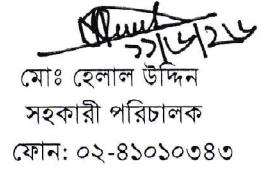 মোঃ হেলাল উদ্দিন
সহকারী পরিচালক
ফোন: ০২-৪১০১০৩৪৩